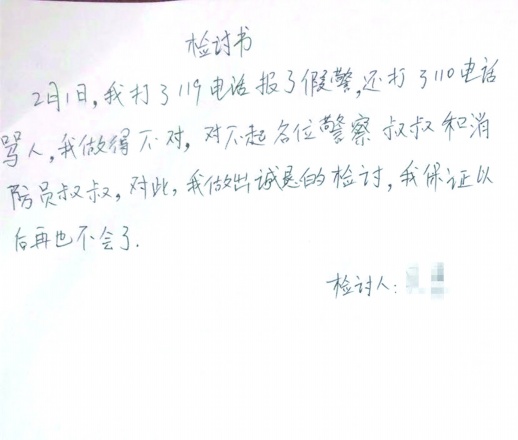 检讨书
2月1日,我打了119电话报了假警,还打了110电话
骂人,我做得不对,对不起各位警察叔叔和消
防员叔叔,对此,我做出诚恳的检讨,我保证以
后再也不会了.
检讨人: